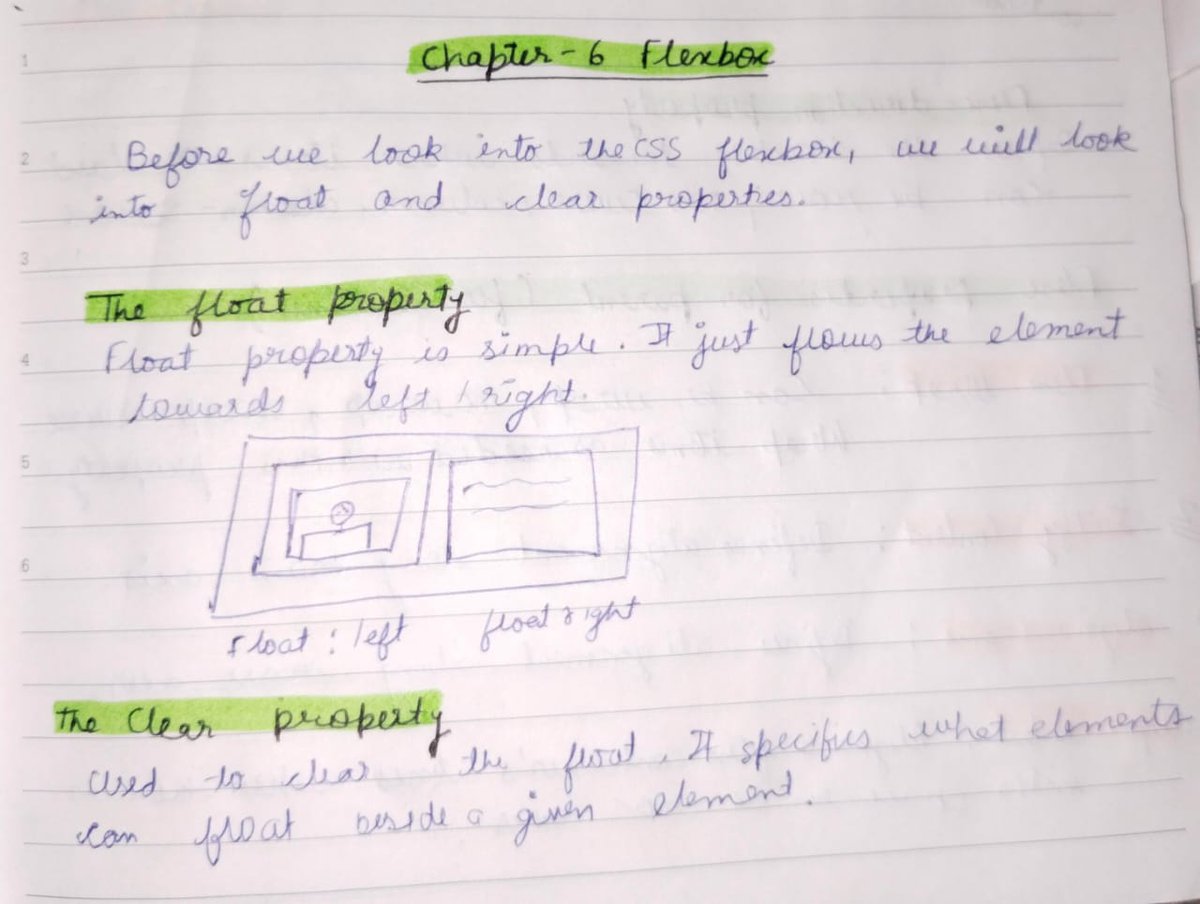 Chapter - 6 Flexbox
Before we look into the CSS flexbox, we will look
into float and clear properties.
The float property
Float property is simple. It just flows the element
towards left / right.
float : left float right
The Clear property
Used to clear the float. It specifies what elements
can float beside a given element.
1
2
3
4
5
6